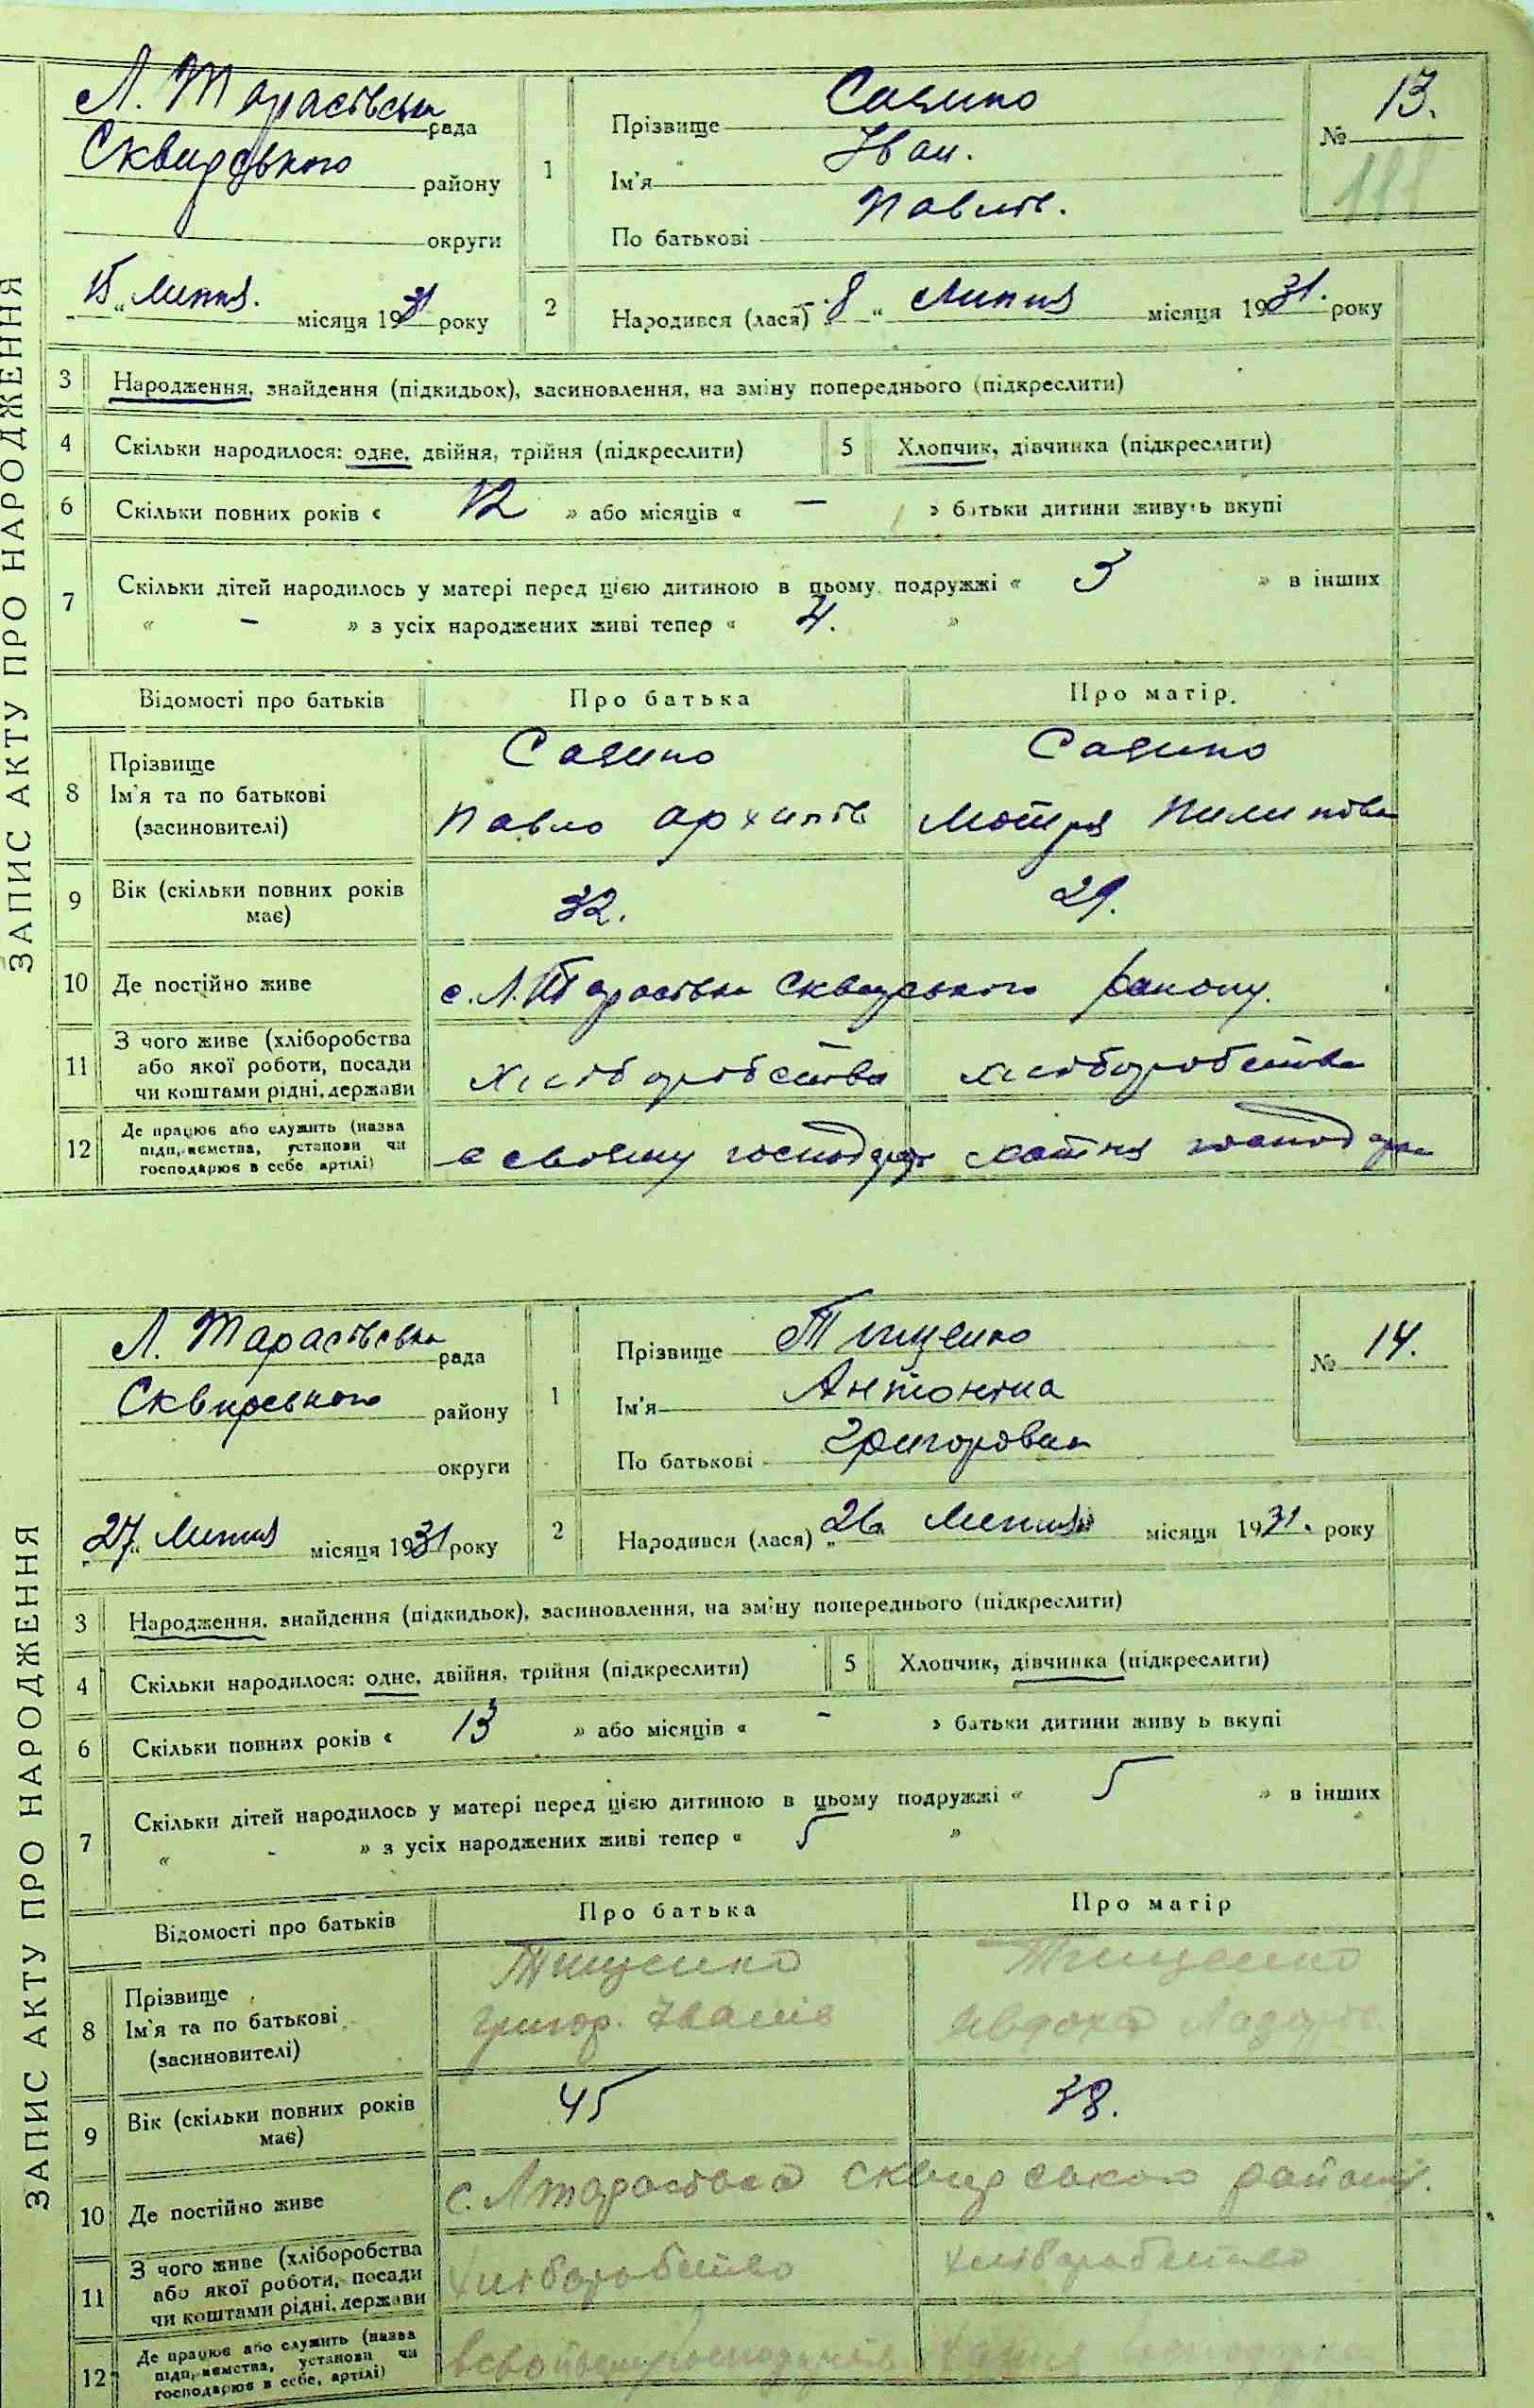 ЗАПИС АКТУ ПРО НАРОДЖЕННЯ
Л. Тарасівська рада
Сквирського району
округи
15 " Липня. місяця 1931 року
1
Прізвище
Ім'я Іван.
По батькові Павлів.
№ 13.
2 Народився (лася) „8 " Липня місяця 1931. року
3 Народження, знайдення (підкидьох), засиновлення, на зміну попереднього (підкреслити)
4 Скільки народилося: одне, двійня, трійня (підкреслити)
5 Хлопчик, дівчинка (підкреслити)
6 Скільки повних років « 12 » або місяців « – » батьки дитини живуть вкупі
7 Скільки дітей народилось у матері перед цією дитиною в цьому подружжі « 3 » в інших
« – » з усіх народжених живі тепер « 4. »
Відомості про батьків Про батька Про матір.
8 Прізвище
Ім'я та по батькові Павло Архипів Мотря Пилипівна
(засиновителі)
9 Вік (скільки повних років 32. 29.
має)
10 Де постійно живе с. Л. Тарасівка Сквирського району.
11 З чого живе (хліборобства
або якої роботи, посади хліборобства хліборобства
чи коштами рідні, держави
12 Де працює або служить (назва
підприємства, установи чи
господарює в себе, артілі) в своєму господар хатня господар
ЗАПИС АКТУ ПРО НАРОДЖЕННЯ
Л. Тарасівська рада
Сквирського району
округи
„27" Липня місяця 1931 року
1
Прізвище Тищенко
Ім'я Антоніна
По батькові Григорівна
№ 14.
2 Народився (лася) „26 Липня місяця 1931. року
3 Народження, знайдення (підкидьок), засиновлення, на зміну попереднього (підкреслити)
4 Скільки народилося: одне, двійня, трійня (підкреслити)
5 Хлопчик, дівчинка (підкреслити)
6 Скільки повних років « 13 » або місяців « – » батьки дитини живу ь вкупі
7 Скільки дітей народилось у матері перед цією дитиною в цьому подружжі « 5 » в інших
« - » з усіх народжених живі тепер « 5 »
Відомості про батьків Про батька Про матір
8 Прізвище Тищенко Тищенко
Ім'я та по батькові Григор. Іванів Явдоха Лазарів.
(засиновителі)
9 Вік (скільки повних років 45 38.
має)
10 Де постійно живе с. Л Тарасівка Сквирського району.
11 З чого живе (хліборобства
або якої роботи, посади хліборобство хліборобство
чи коштами рідні, держави
12 Де працює або служить (назва
підприємства, установи чи
господарює в себе, артілі)